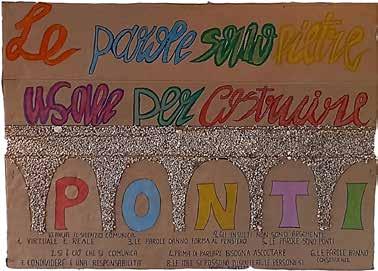 Le parole sono pietre
usale per costruire
PONTI
SILENZIO COMUNICA
9. GLI INSULTI NON SONO ARGOMENTI
1. VIRTUALE È REALE
3. LE PAROLE DANNO FORMA AL PENSIERO
LE PAROLE SONO PONTI
2. SI È CIÒ CHE SI COMUNICA
4. PRIMA DI PARLARE BISOGNA ASCOLTARE
LE PAROLE HANNO CONSEGUENZE
CONDIVIDERE È UNA RESPONSABILITÀ
8. LE IDEE SI POSSONO DISCUTERE, LE PERSONE